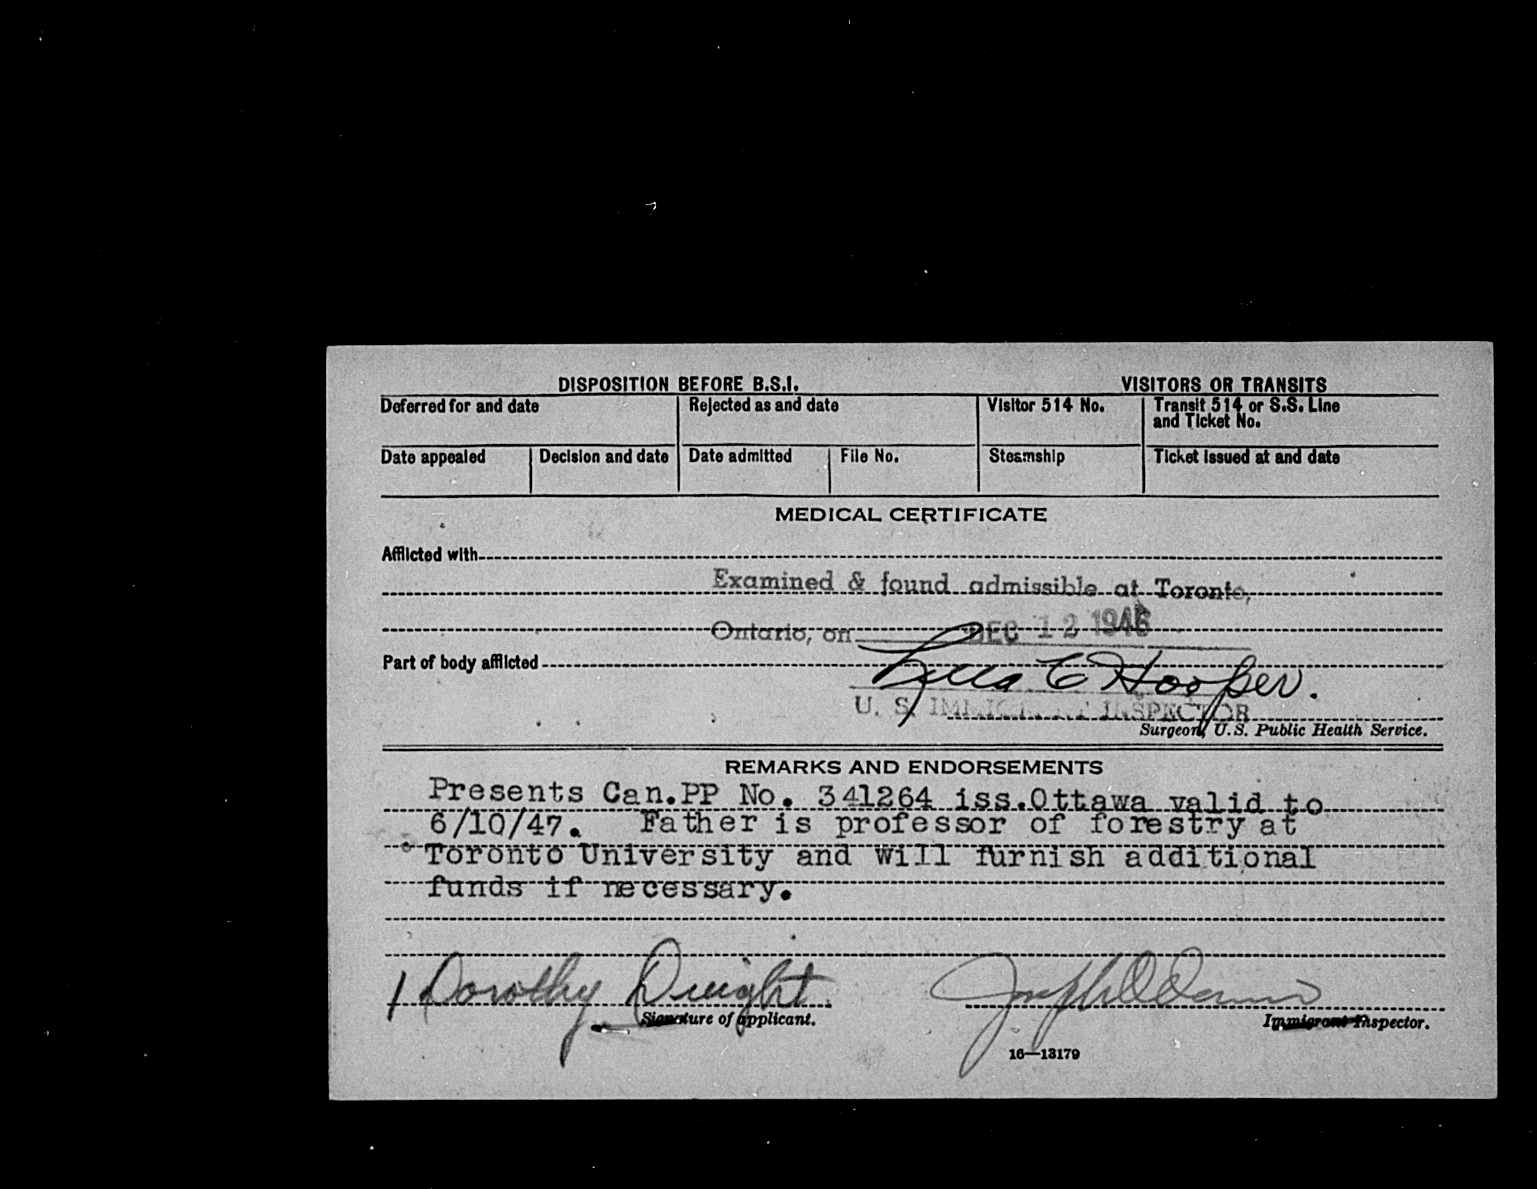 DISPOSITION BEFORE B.S.I. VISITORS OR TRANSITS
Deferred for and date Rejected as and date Visitor 514 No. Transit 514 or S.S. Line
and Ticket No.
Date appealed Decision and date Date admitted File No. Steamship Ticket issued at and date
MEDICAL CERTIFICATE
Afflicted with
Examined & found admissible at Toronto,
Ontario, on DEC 12 1946
Part of body afflicted
C Hooper.
U. S. IMMIGRANT INSPECTOR
Surgeon, U.S. Public Health Service.
REMARKS AND ENDORSEMENTS
Presents Can.PP No. 341264 iss.Ottawa valid to
6/10/47. Father is professor of forestry at
Toronto University and will furnish additional
funds if necessary.
Dorothy Dwight
Signature of applicant.
Immigrant Inspector.
16—13179